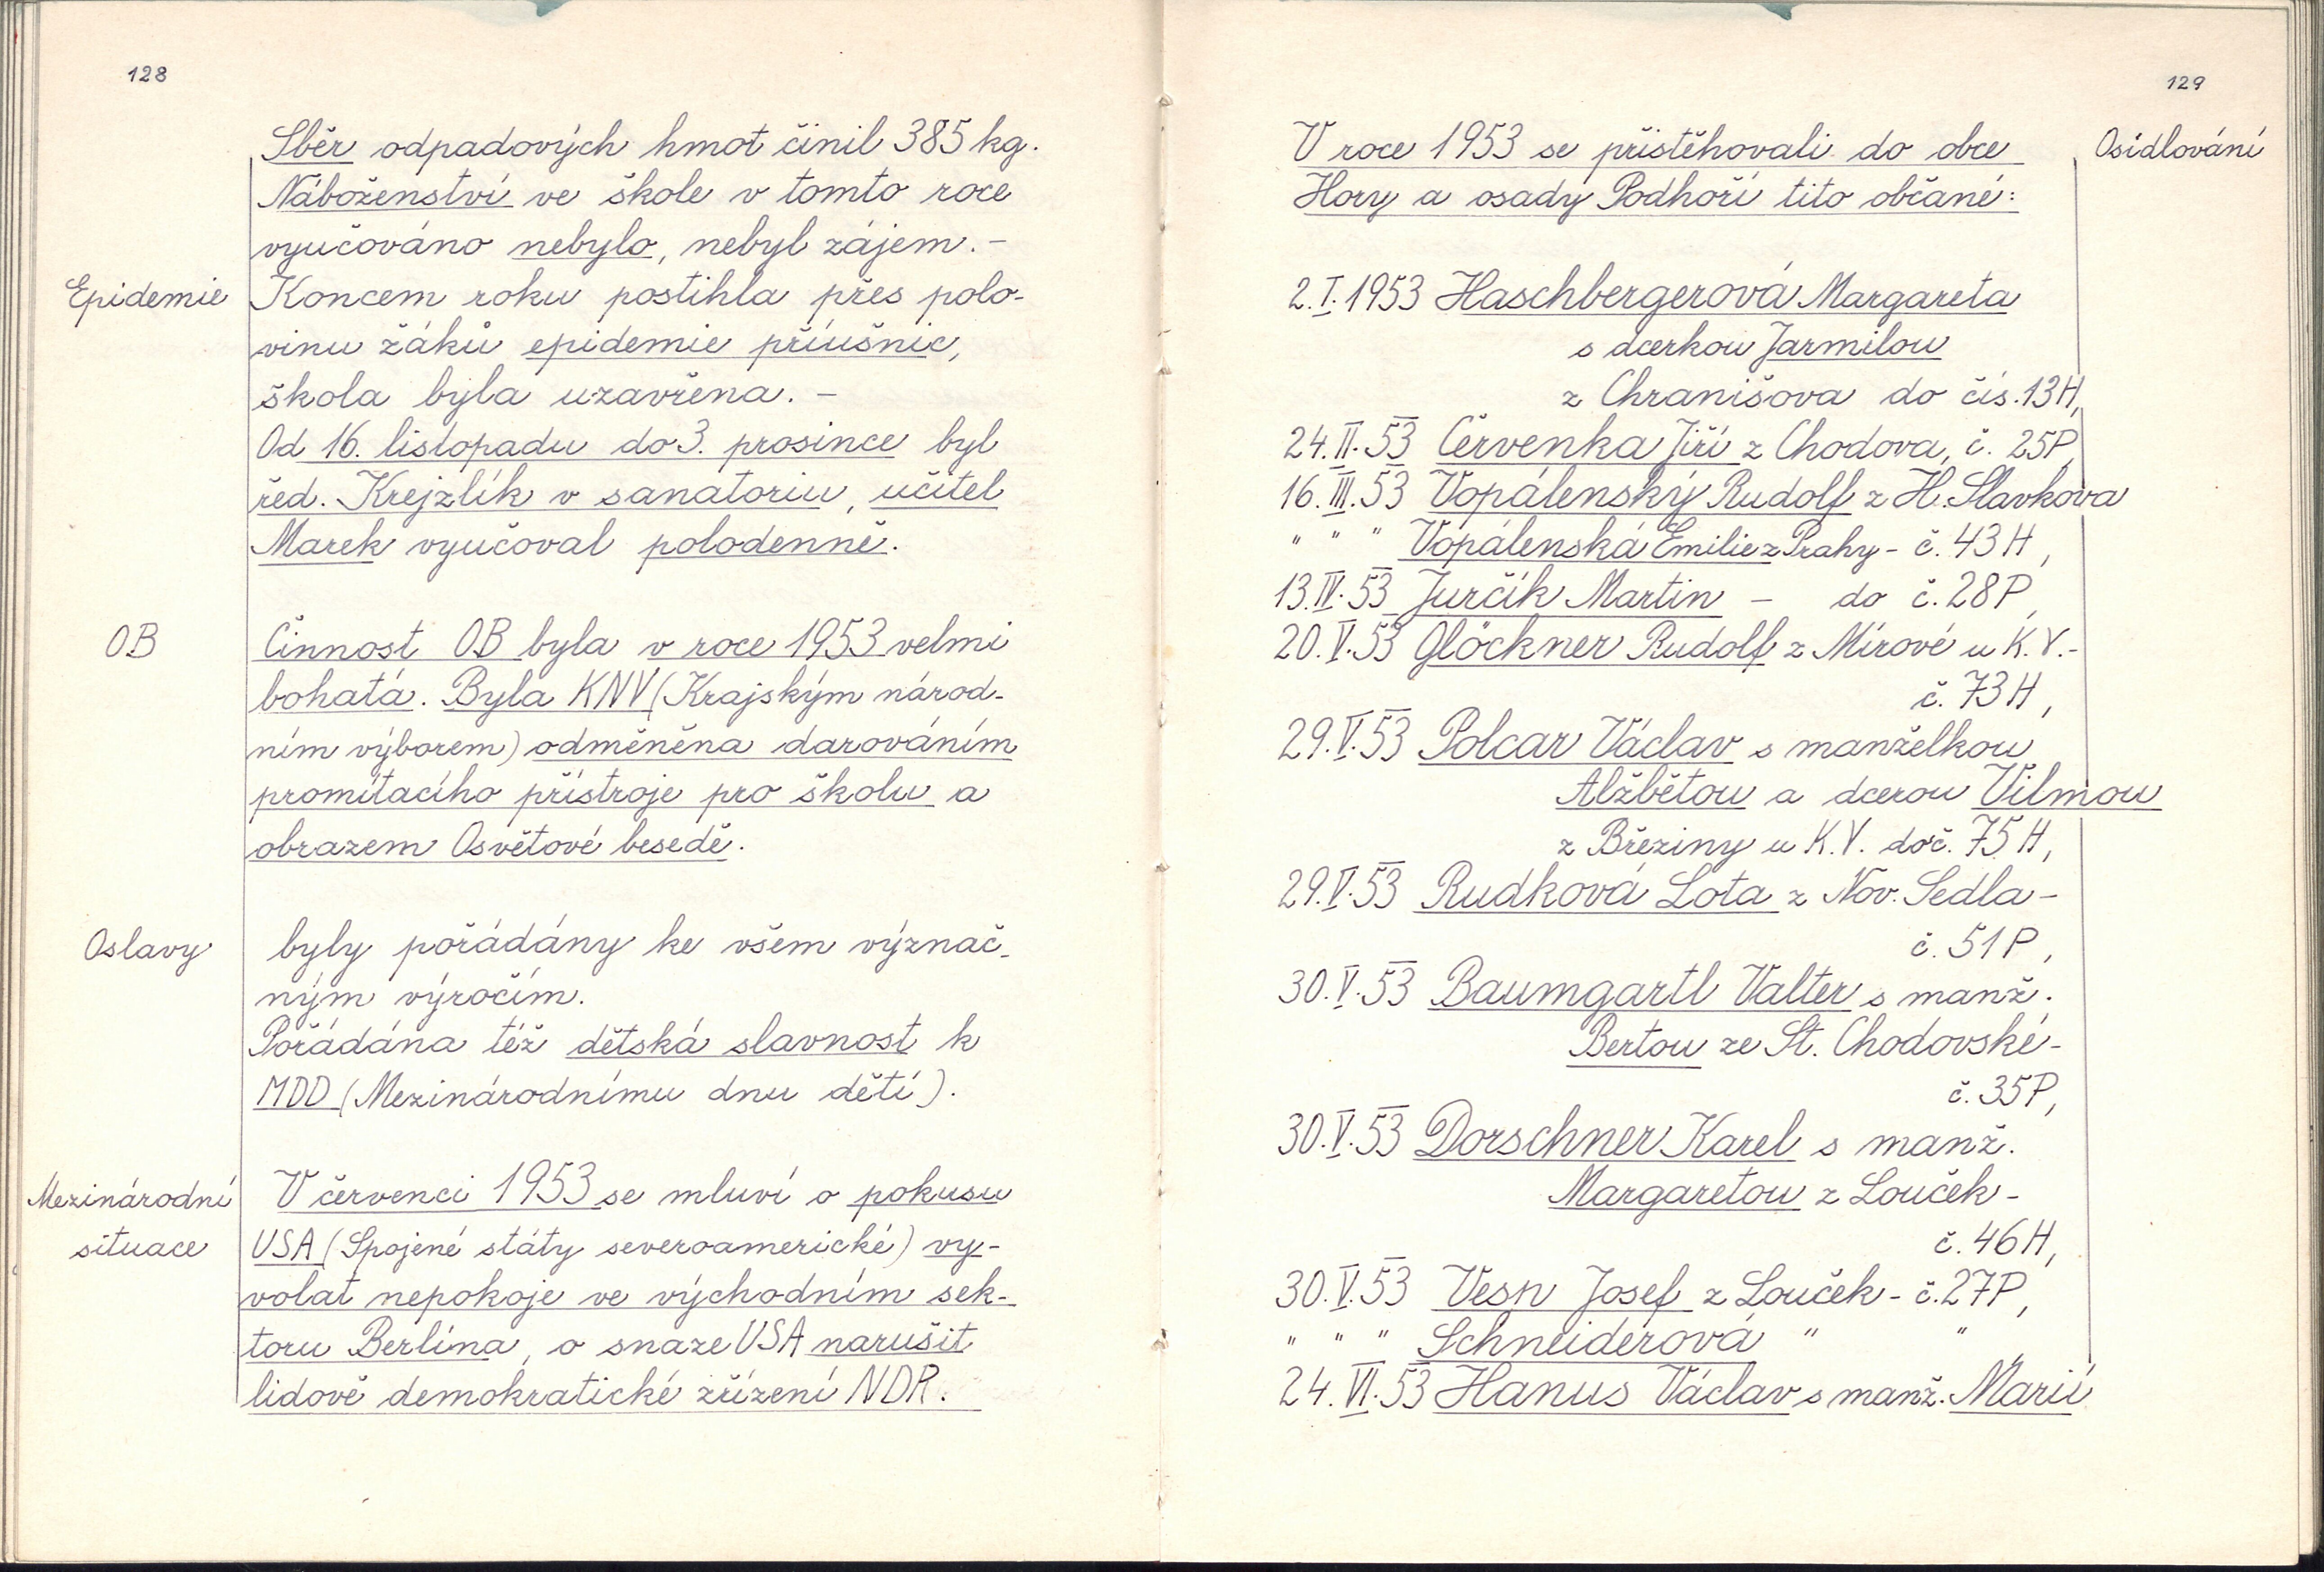 128
Sběr odpadových hmot činil 385 kg.
Náboženství ve škole v tomto roce
vyučováno nebylo, nebyl zájem. -
Epidemie
Koncem roku postihla přes polo-
vinu žáků epidemie příušnic,
škola byla uzavřena. -
Od 16. listopadu do 3. prosince byl
řed. Krejzlík v sanatoriu, učitel
Marek vyučoval polodenně.
OB
Činnost OB byla v roce 1953 velmi
bohatá. Byla KNV (Krajským národ-
ním výborem) odměněna darováním
promítacího přístroje pro školu a
obrazem Osvětové besedě.
Oslavy
byly pořádány ke všem význač-
ným výročím.
Pořádána též dětská slavnost k
MDD (Mezinárodnímu dnu dětí).
Mezinárodní
situace
V červenci 1953 se mluví o pokusu
USA (Spojené státy severoamerické) vy-
volat nepokoje ve východním sek-
toru Berlína, o snaze USA narušit
lidově demokratické zřízení NDR.
129
Osídlování
V roce 1953 se přistěhovali do obce
Hory a osady Podhoří tito občané:
2.I.1953 Haschbergerová Margareta
s dcerkou Jarmilou
z Chranišova do čís. 13H,
24.II.53 Červenka Jiří z Chodova, č. 25P,
16.III.53 Vopálenský Rudolf z H. Slavkova
" " " Vopálenská Emilie z Prahy - č. 43H,
13.IV.53 Jurčík Martin - do č. 28P,
20.V.53 Glöckner Rudolf z Mírové u K.V.-
č. 73H,
29.V.53 Polcar Václav s manželkou
Alžbětou a dcerou Vilmou
z Březiny u K.V. do č. 75H,
29.V.53 Rudková Lota z Nov. Sedla -
č. 51P,
30.V.53 Baumgartl Valter s manž.
Bertou ze St. Chodovské -
č. 35P,
30.V.53 Dorschner Karel s manž.
Margaretou z Louček -
č. 46H,
30.V.53 Vesn Josef z Louček - č. 27P,
" " " Schneiderová " " ,
24.VI.53 Hanus Václav s manž. Marií